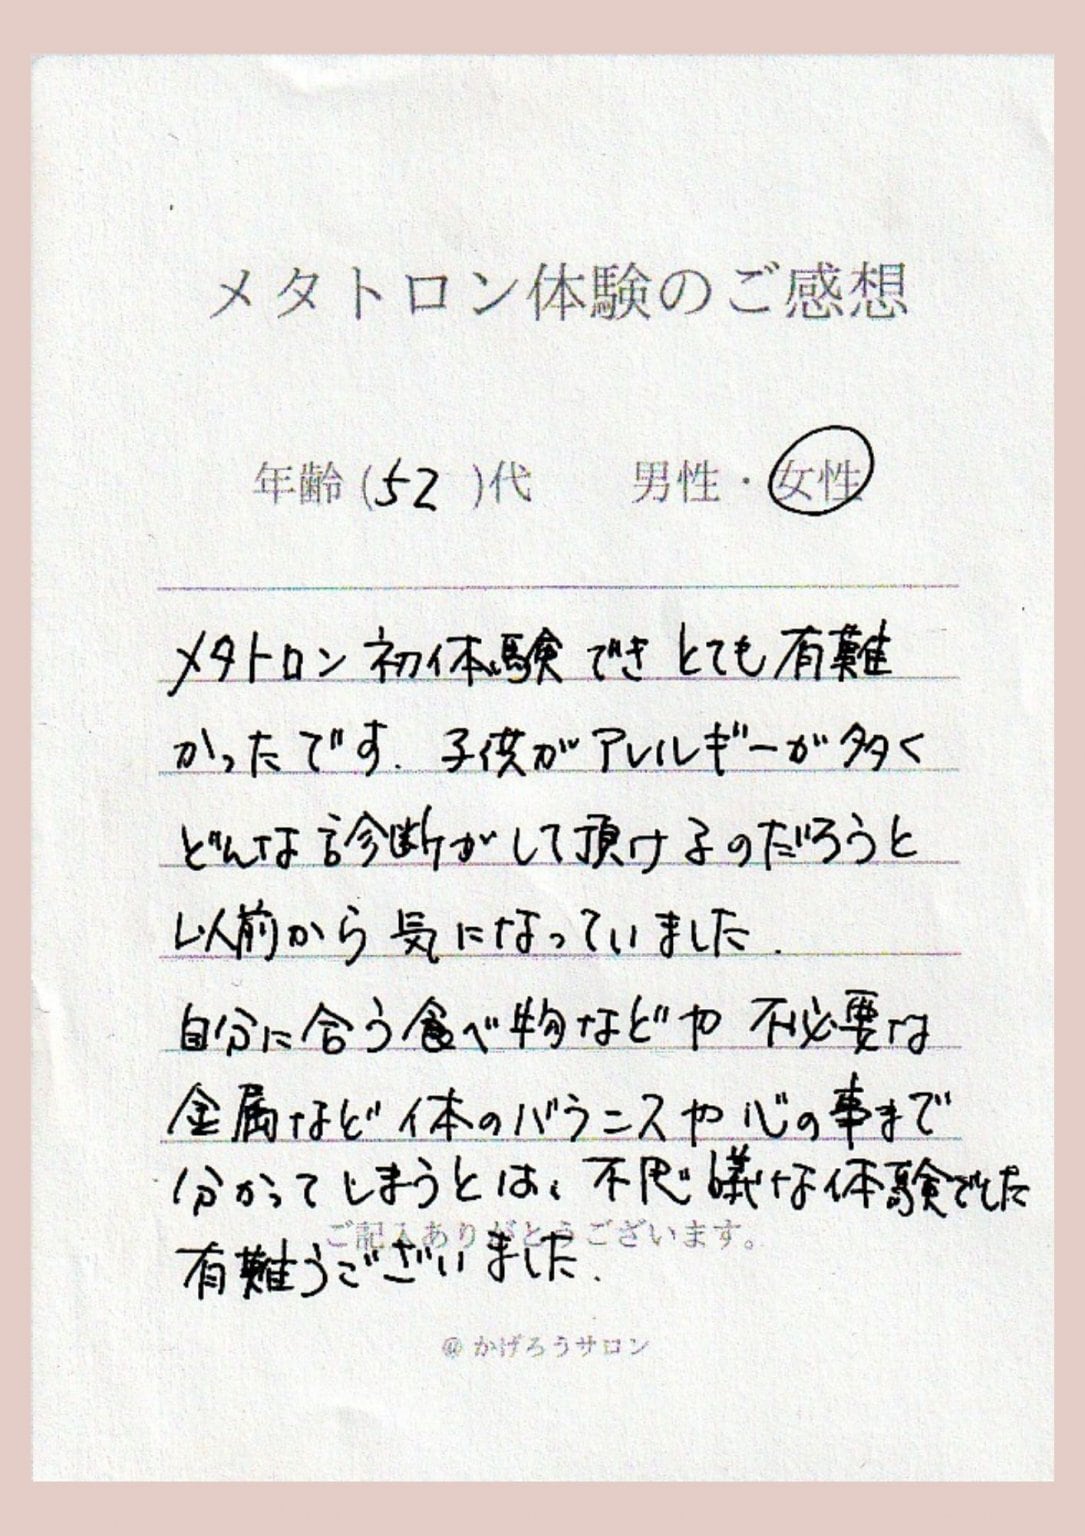 メタトロン体験のご感想
年齢(52)代 男性・女性
メタトロン初体験できとても有難
かったです. 子供がアレルギーが多く
どんな診断がして頂けるのだろうと
以前から気になっていました.
自分に合う食べ物などや不必要な
金属など体のバランスや心の事まで
分かってしまうとは、不思議な体験でした
ご記入ありがとうございます。
有難うございました.
@かげろうサロン